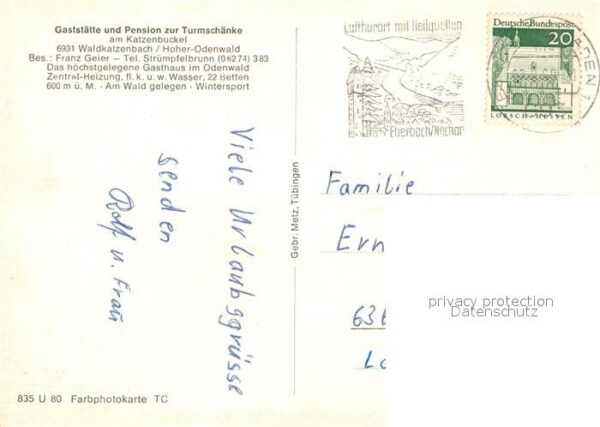 Gaststätte und Pension zur Turmschänke
am Katzenbuckel
6931 Waldkatzenbach / Hoher-Odenwald
Bes.: Franz Geier — Tel. Strümpfelbrunn (06274) 383
Das höchstgelegene Gasthaus im Odenwald
Zentral-Heizung, fl. k. u. w. Wasser, 22 Betten
600 m ü. M. · Am Wald gelegen · Wintersport
Viele Urlaubsgrüsse
senden
Rolf u. Frau
835 U 80 Farbphotokarte TC
Gebr. Metz, Tübingen
Luftkurort mit Heilquellen
Eberbach/Neckar
Deutsche Bundespost
20
LORSCH-HESSEN
Familie
Ern
privacy protection
Datenschutz